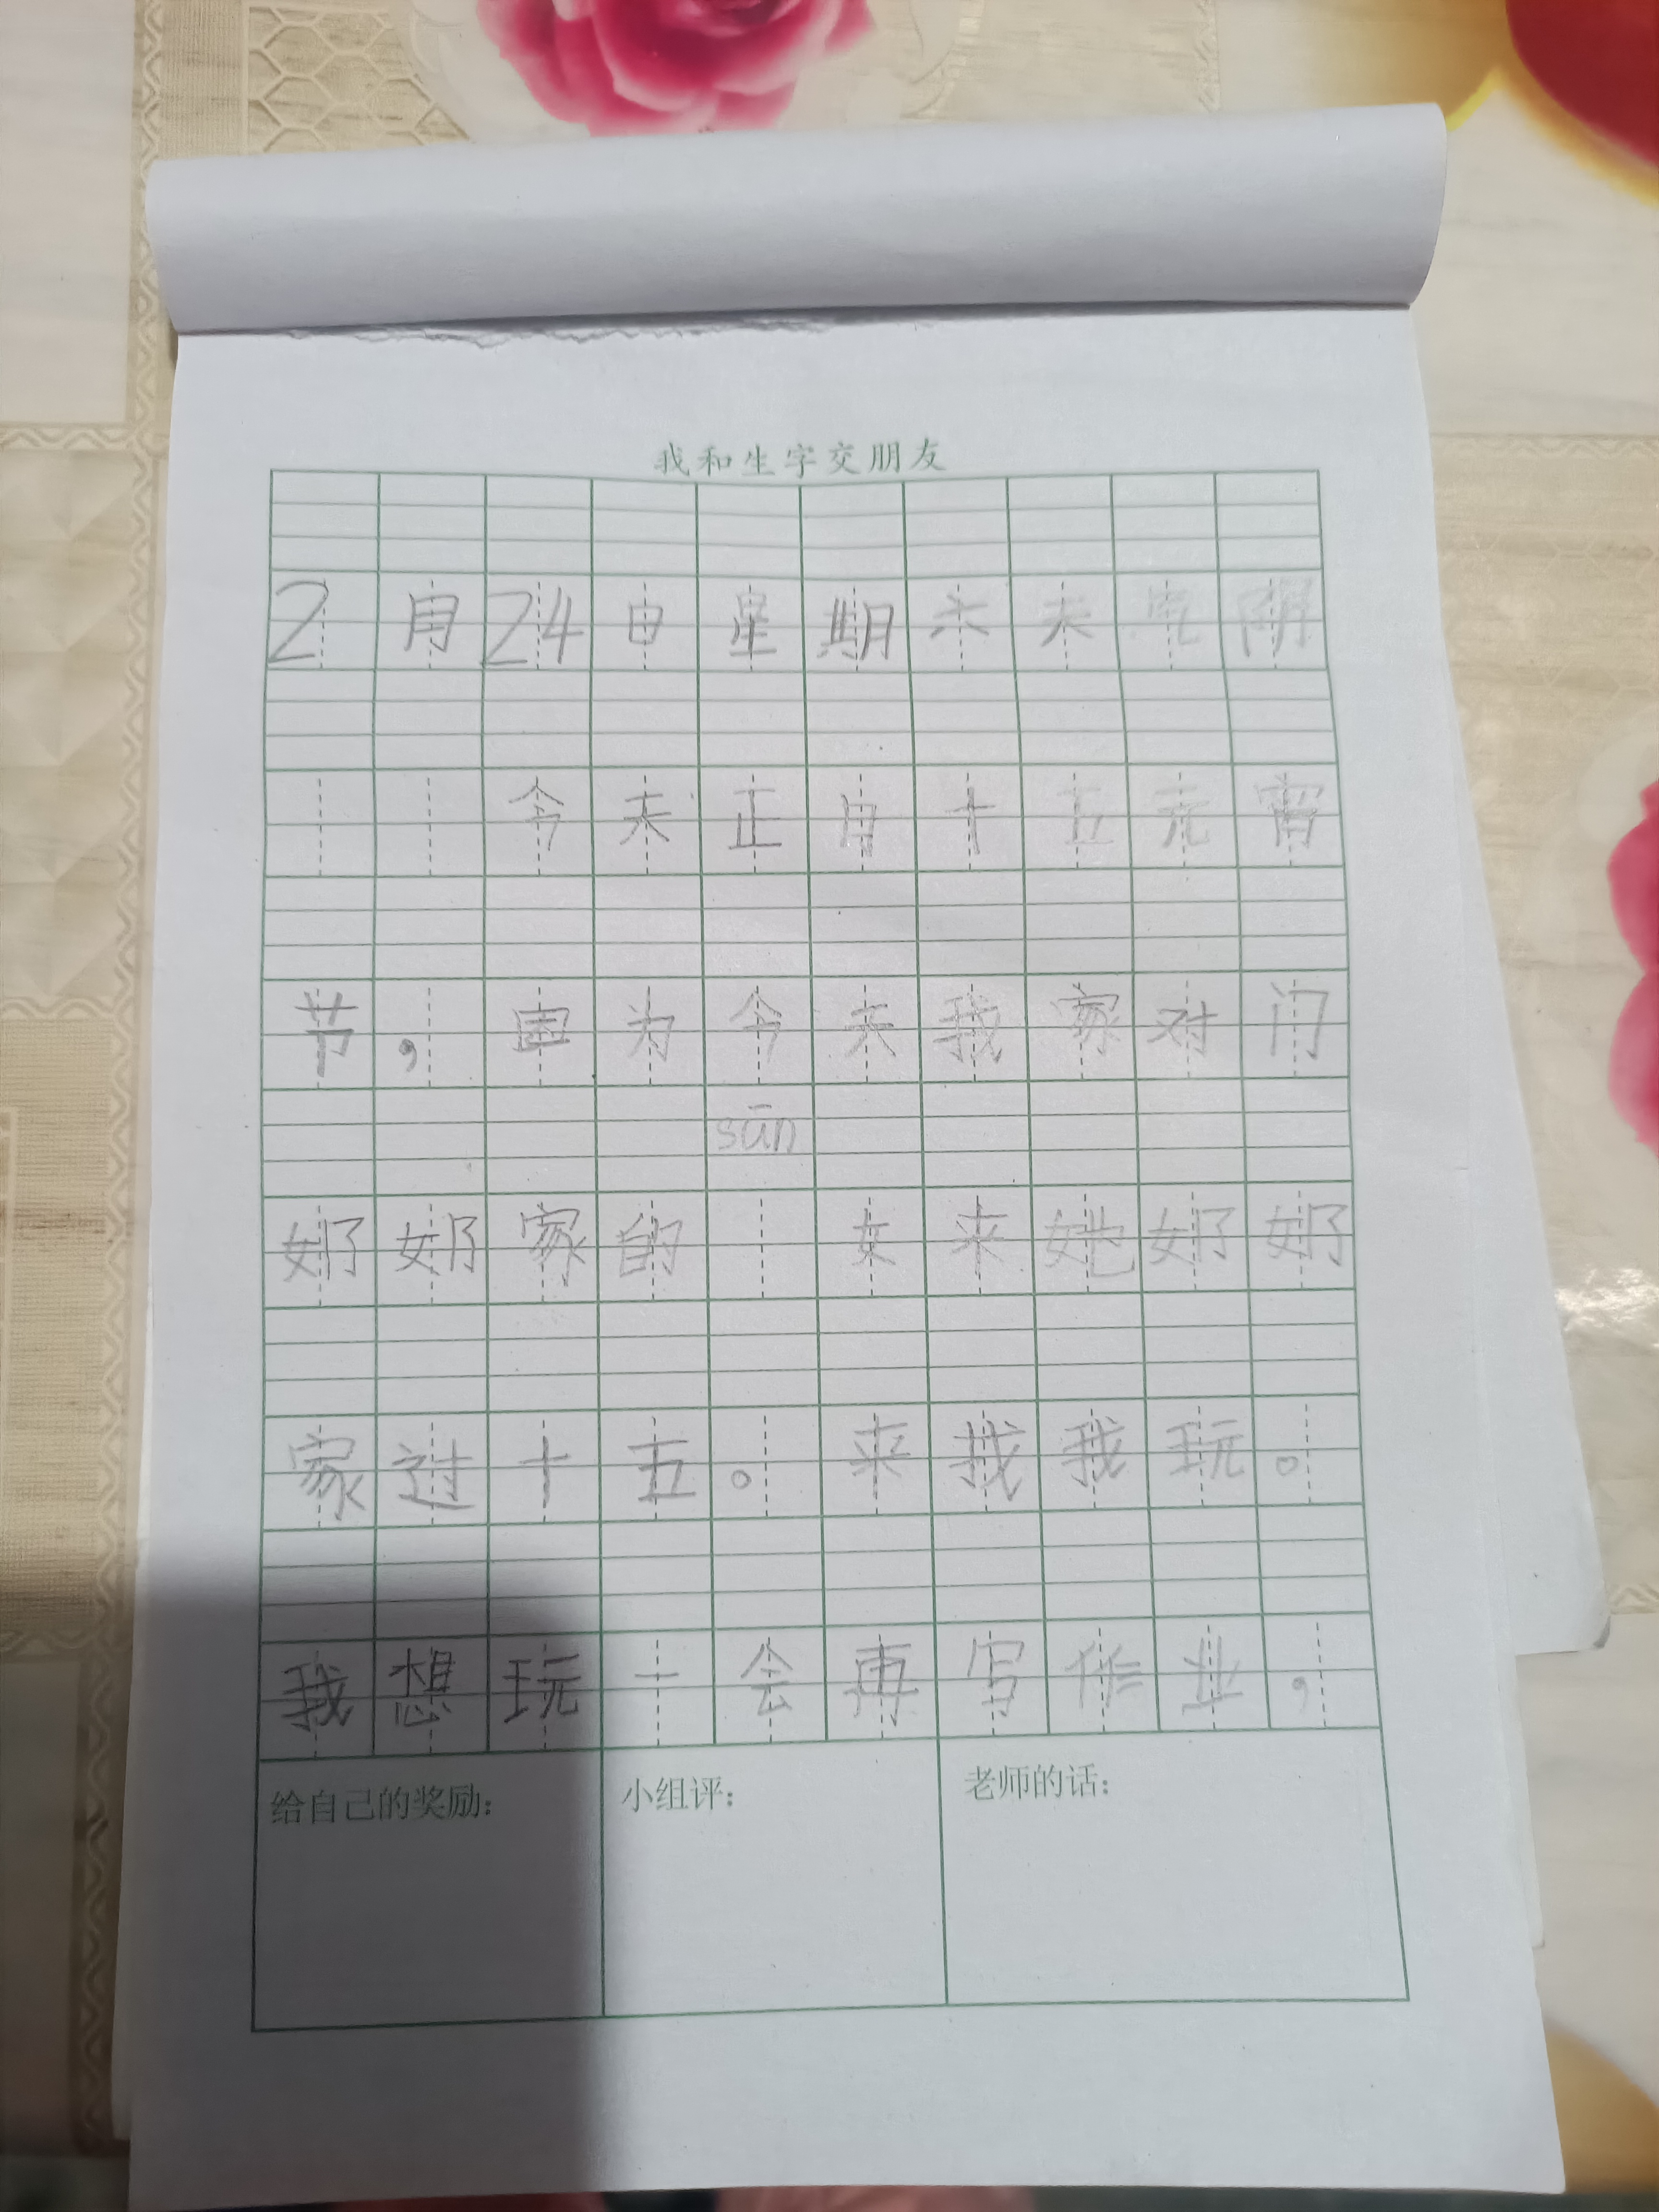 我和生字交朋友
2月24日星期六天气阴
今天正月十五元宵
节，因为今天我家对门
sūn
奶奶家的 女来她奶奶
家过十五。来找我玩。
我想玩一会再写作业，
给自己的奖励： 小组评： 老师的话：